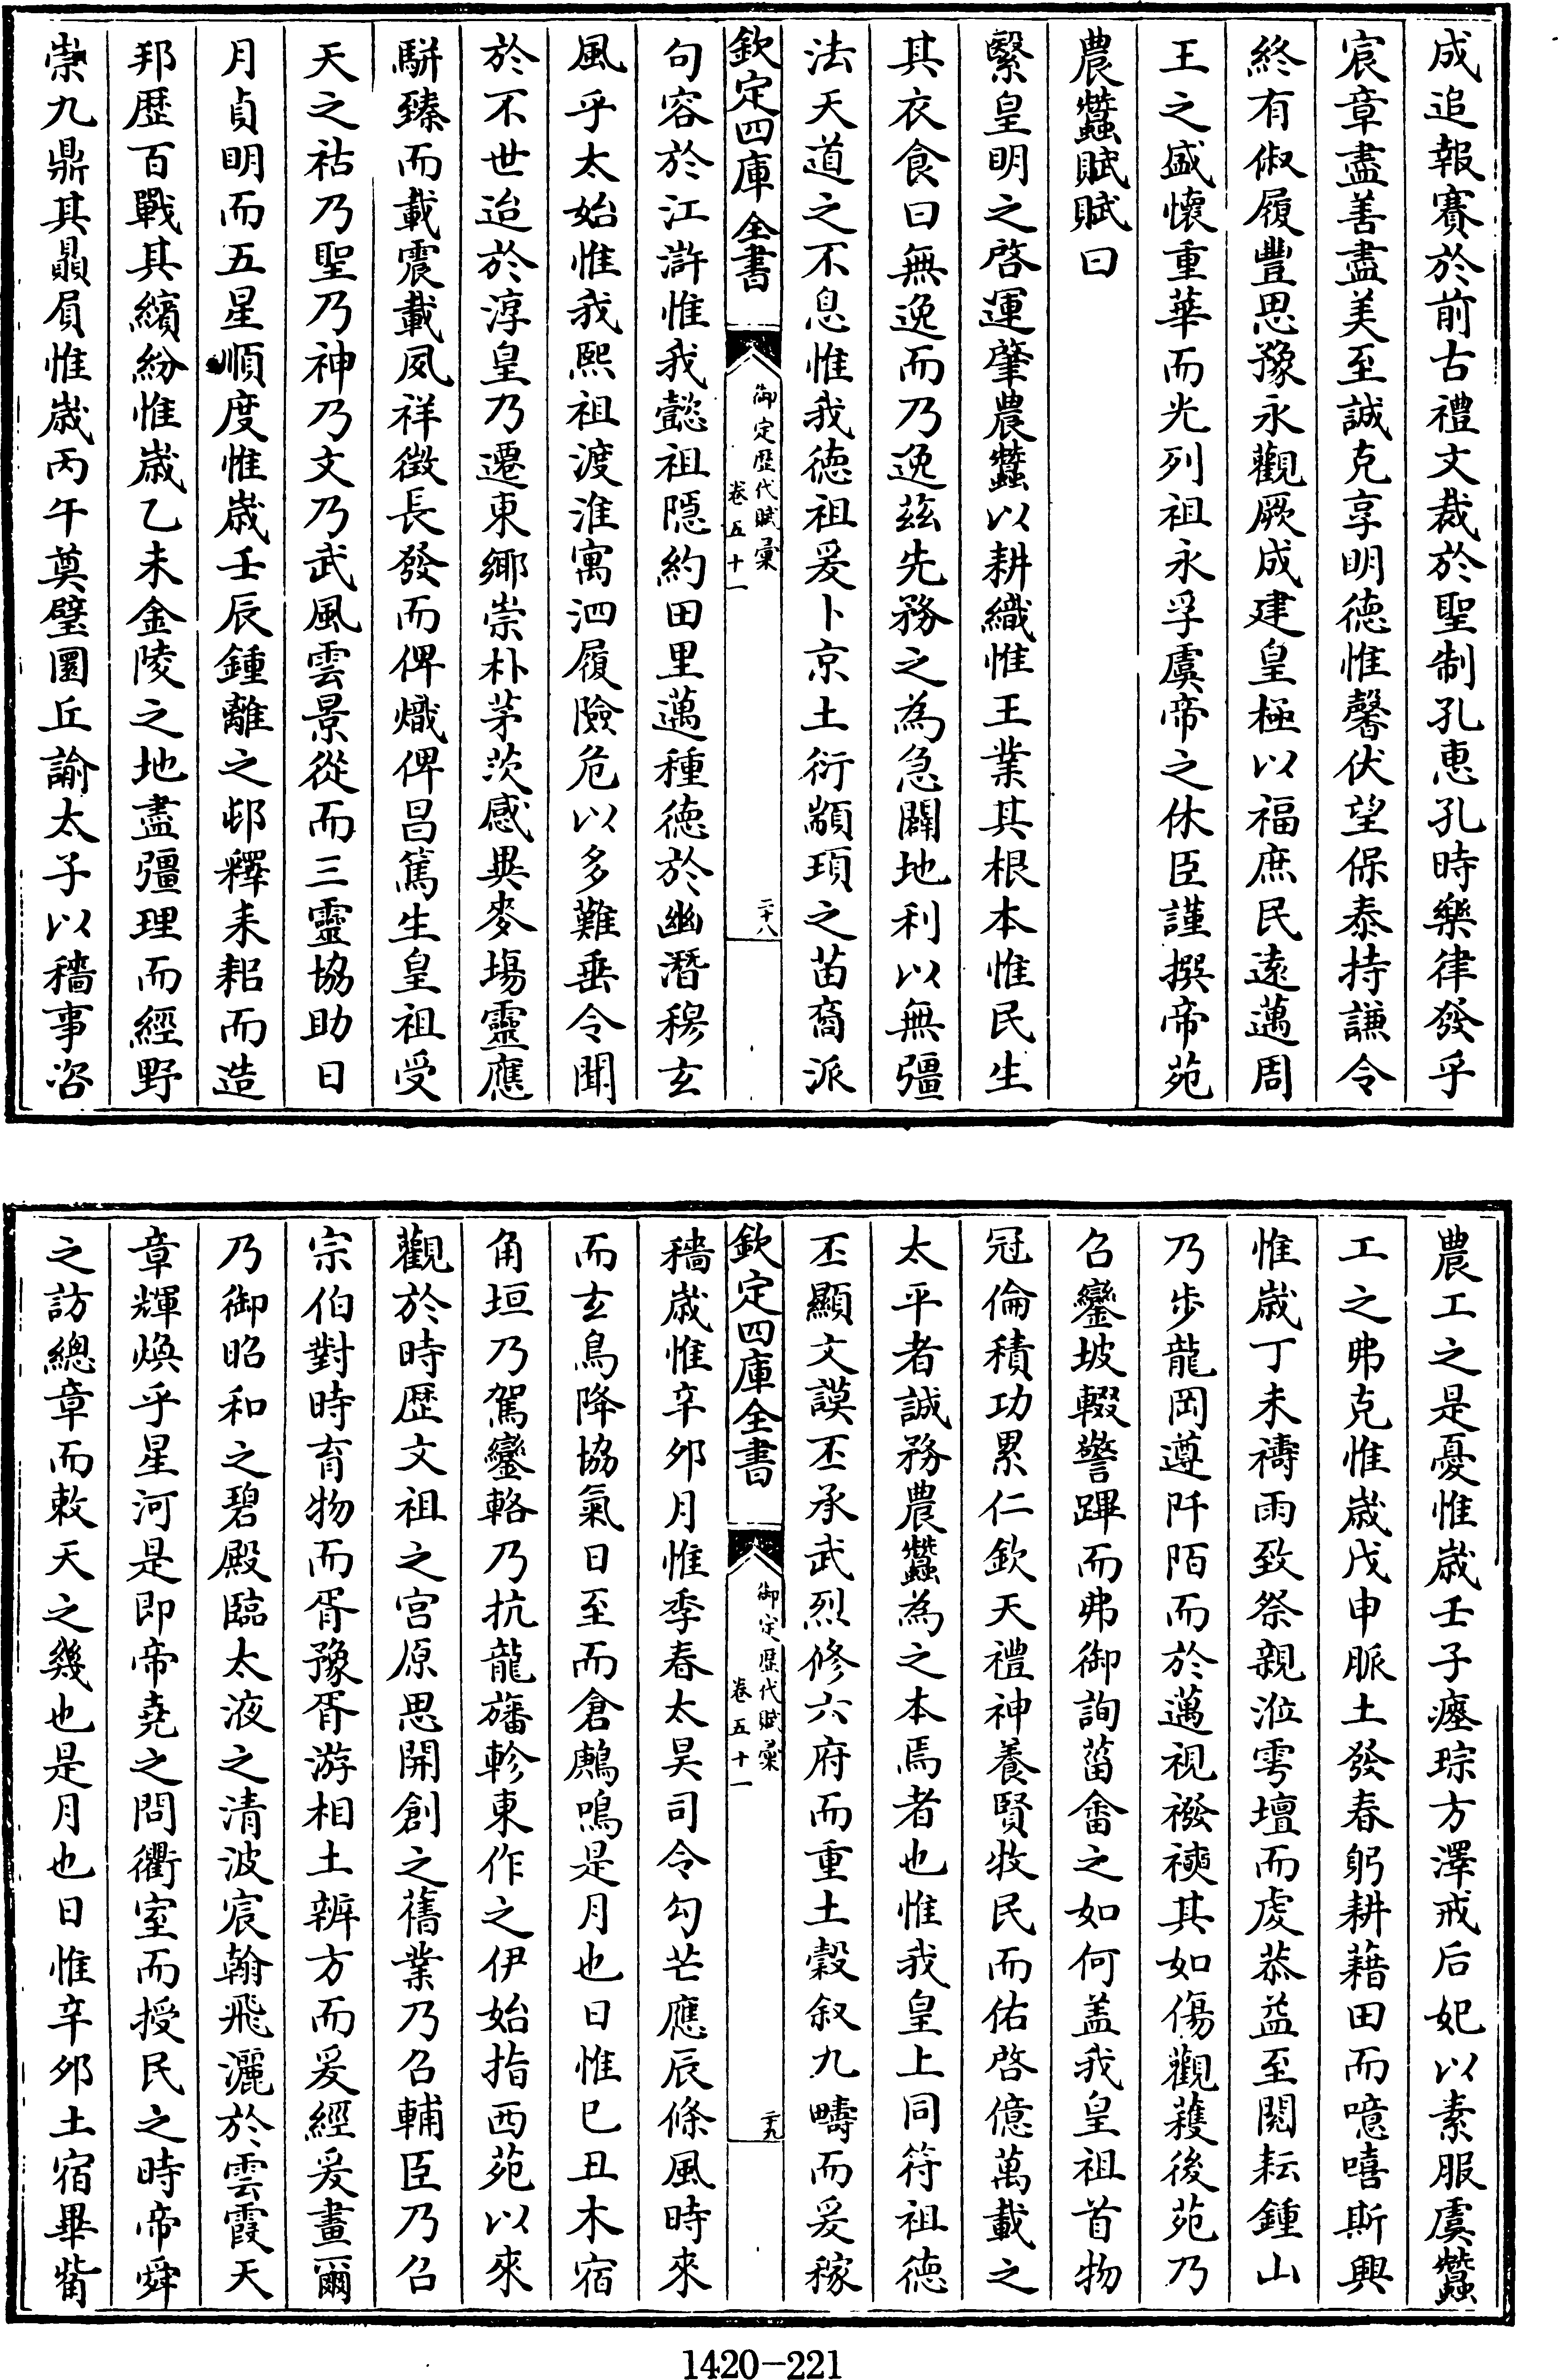 成追報賽於前古禮文裁於聖制孔惠孔時樂律發乎
宸章盡善盡美至誠克享明德惟馨伏望保泰持謙令
終有俶履豐思豫永觀厥成建皇極以福庶民遠邁周
王之盛懷重華而光列祖永孚虞帝之休臣謹撰帝苑
農蠶賦賦曰
繄皇明之啓運肇農蠶以耕織惟王業其根本惟民生
其衣食曰無逸而乃逸茲先務之為急闢地利以無彊
法天道之不息惟我德祖爰卜京土衍顓頊之苗裔派
欽定四庫全書
御定歴代賦彙
卷五十一
二十八
句容於江滸惟我懿祖隱約田里邁種德於幽潛穆玄
風乎太始惟我熙祖渡淮寓泗履險危以多難垂令聞
於不世迨於淳皇乃遷東鄉崇朴茅茨感異麥場靈應
駢臻而載震載夙祥徵長發而俾熾俾昌篤生皇祖受
天之祜乃聖乃神乃文乃武風雲景從而三靈協助日
月貞明而五星順度惟歲壬辰鍾離之邨釋耒耜而造
邦歴百戰其繽紛惟歲乙未金陵之地盡彊理而經野
崇九鼎其贔屓惟歲丙午奠璧圜丘諭太子以穡事咨
農工之是憂惟歲壬子瘞琮方澤戒后妃以素服虞蠶
工之弗克惟歲戊申脈土發春躬耕藉田而噫嘻斯興
惟歲丁未禱雨致祭親涖雩壇而虔恭益至閱耘鍾山
乃步龍岡遵阡陌而於邁視襏襫其如傷觀穫後苑乃
召鑾坡輟警蹕而弗御詢菑畬之如何盖我皇祖首物
冠倫積功累仁欽天禮神養賢牧民而佑啓億萬載之
太平者誠務農蠶為之本焉者也惟我皇上同符祖德
丕顯文謨丕承武烈修六府而重土穀叙九疇而爰稼
欽定四庫全書
御定歴代賦彙
卷五十一
二十九
穡歲惟辛夘月惟季春太昊司令勾芒應辰條風時來
而玄鳥降協氣日至而倉鷞鳴是月也日惟巳丑木宿
角垣乃駕鑾輅乃抗龍旛軫東作之伊始指西苑以來
觀於時歴文祖之宫原思開創之舊業乃召輔臣乃召
宗伯對時育物而胥豫胥游相土辨方而爰經爰畫爾
乃御昭和之碧殿臨太液之清波宸翰飛灑於雲霞天
章輝煥乎星河是即帝堯之問衢室而授民之時帝舜
之訪總章而敕天之幾也是月也日惟辛夘土宿畢觜
1420-221